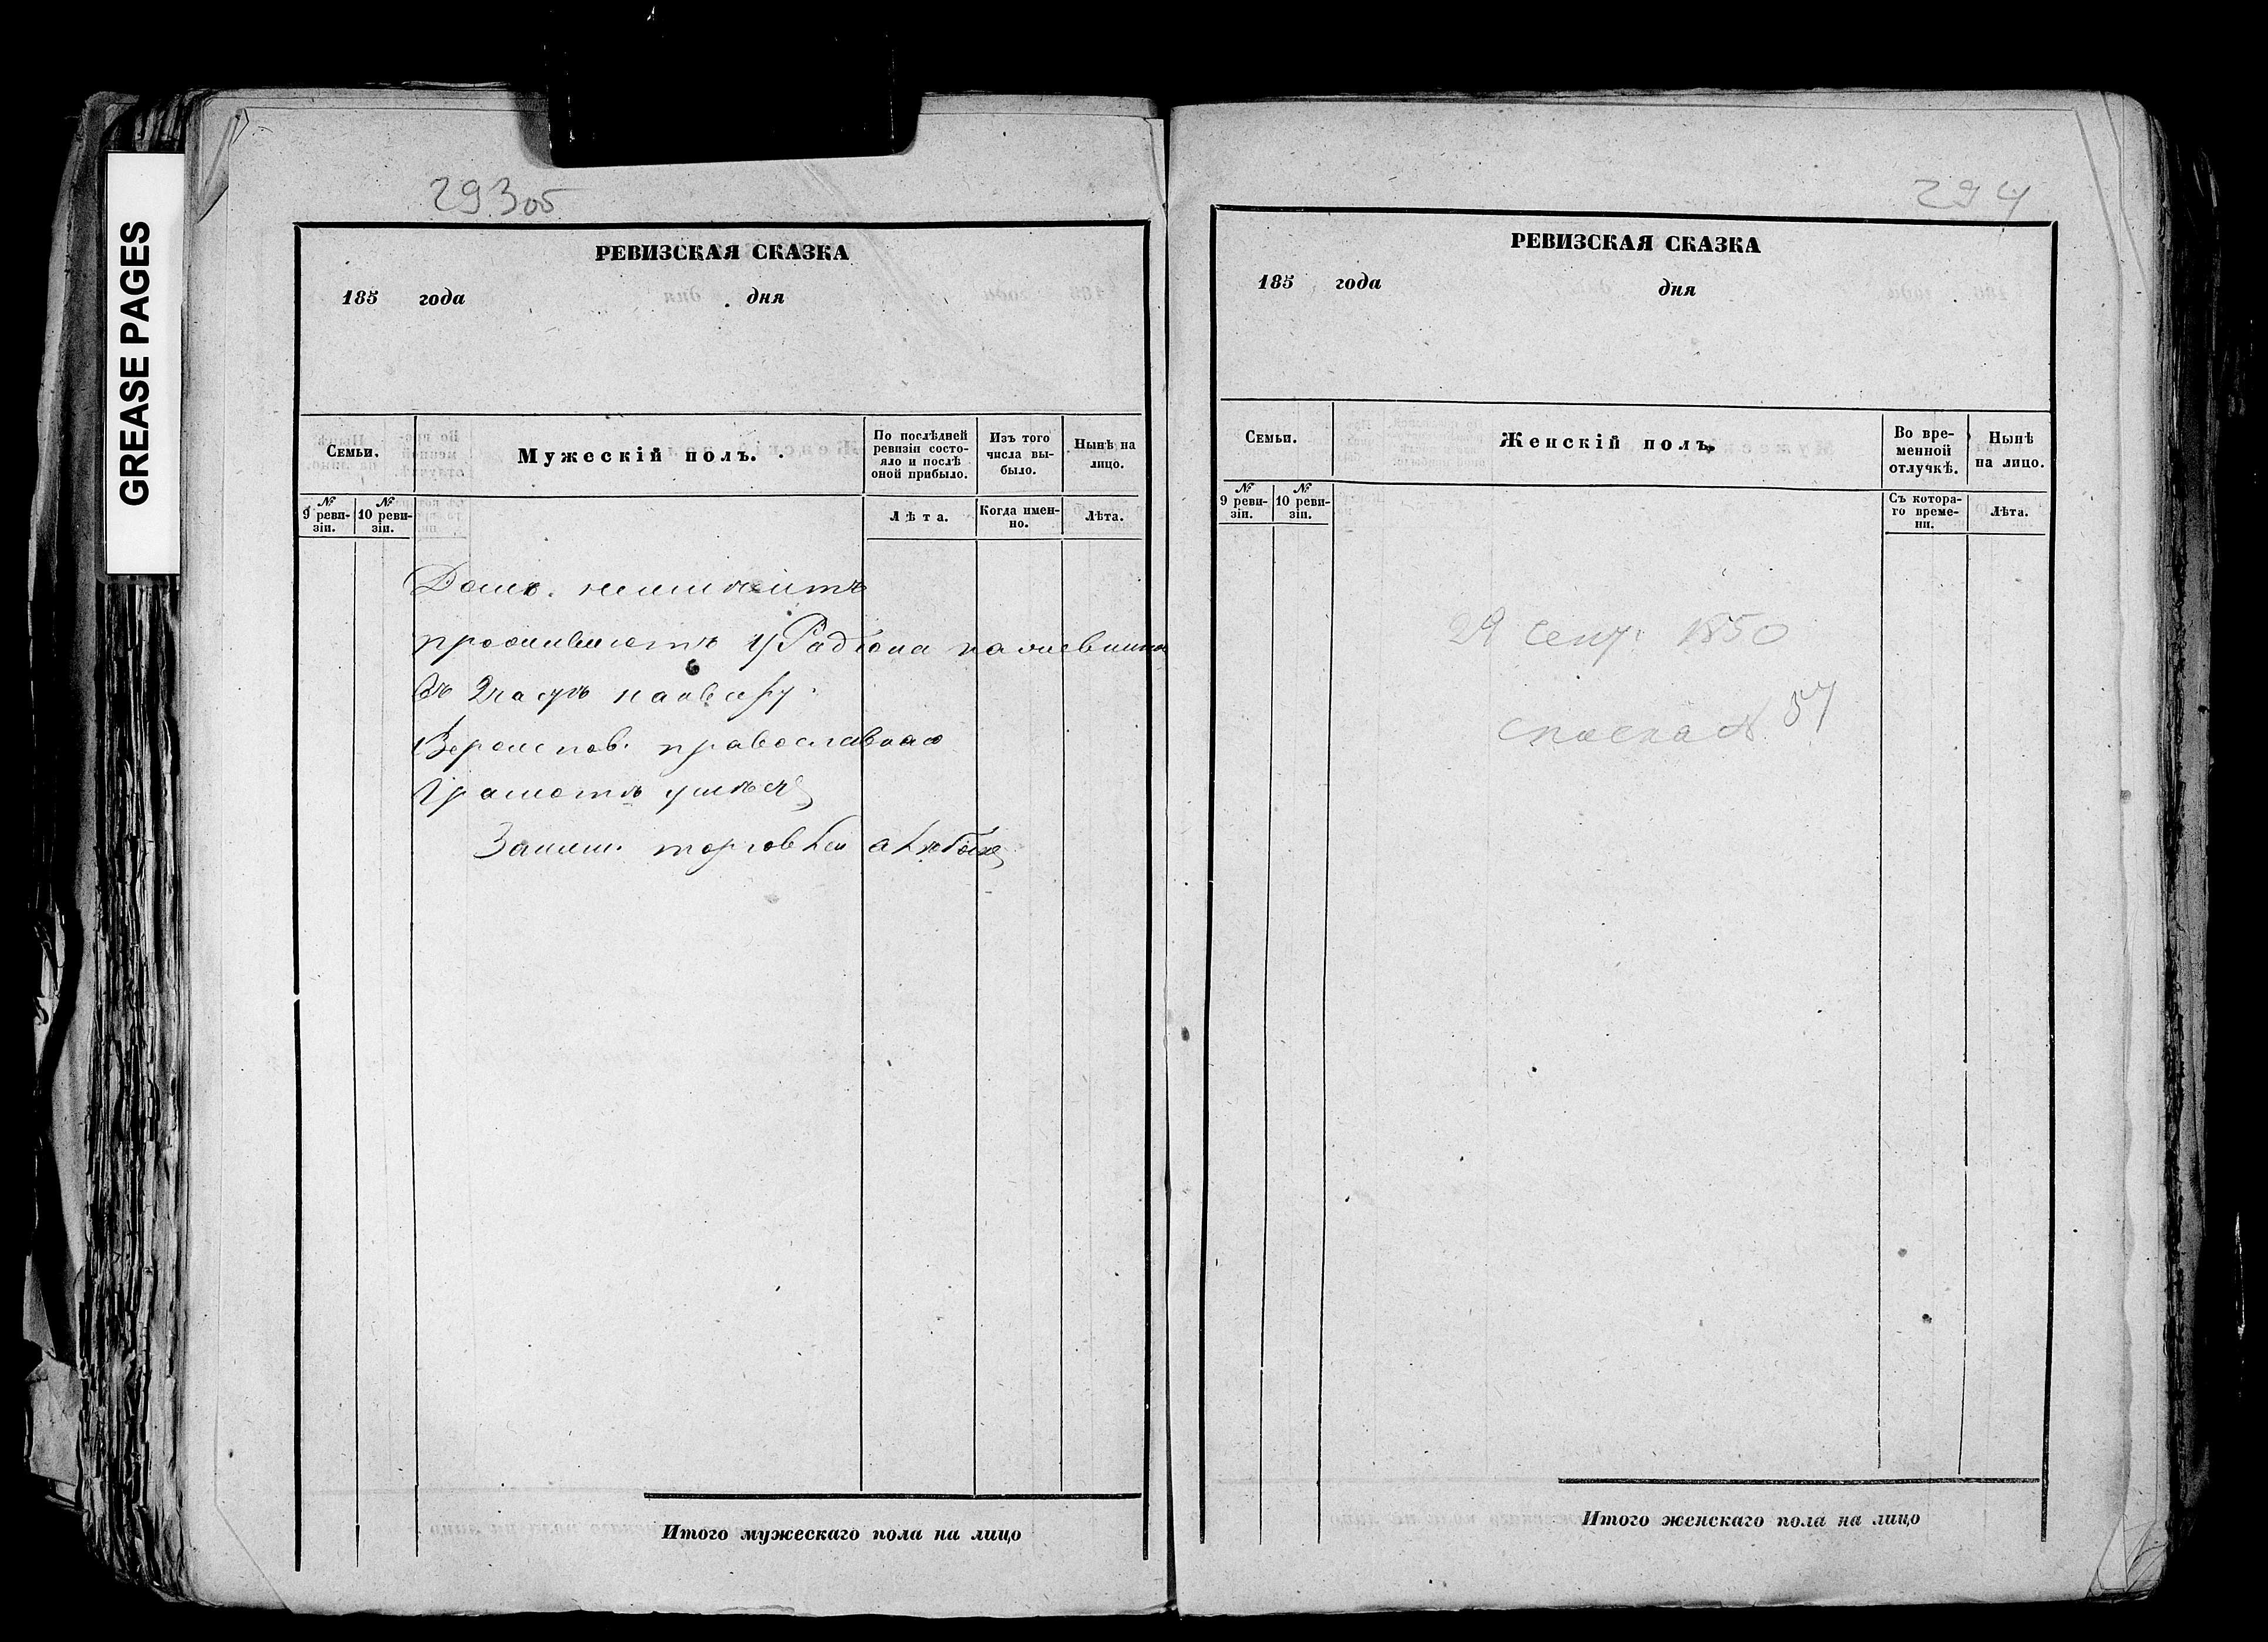 GREASE PAGES
293об
РЕВИЗСКАЯ СКАЗКА
185 года дня
Семьи.
Мужескій полъ.
По послѣдней ревизіи состояло и послѣ оной прибыло.
Изъ того числа выбыло.
Нынѣ на лицо.
№ 9 ревизіи.
№ 10 ревизіи.
Лѣта.
Когда именно.
Лѣта.
Дома. неимѣитъ
проживаетъ у Радіона
въ
Вероиспов. православнаго
Грамотѣ умѣетъ
Заним. торговлей
Итого мужескаго пола на лицо
294
РЕВИЗСКАЯ СКАЗКА
185 года дня
Семьи.
Женскій полъ.
Во временной отлучкѣ.
Нынѣ на лицо.
№ 9 ревизіи.
№ 10 ревизіи.
Съ котораго времени.
Лѣта.
29 сент. 1850
57
Итого женскаго пола на лицо